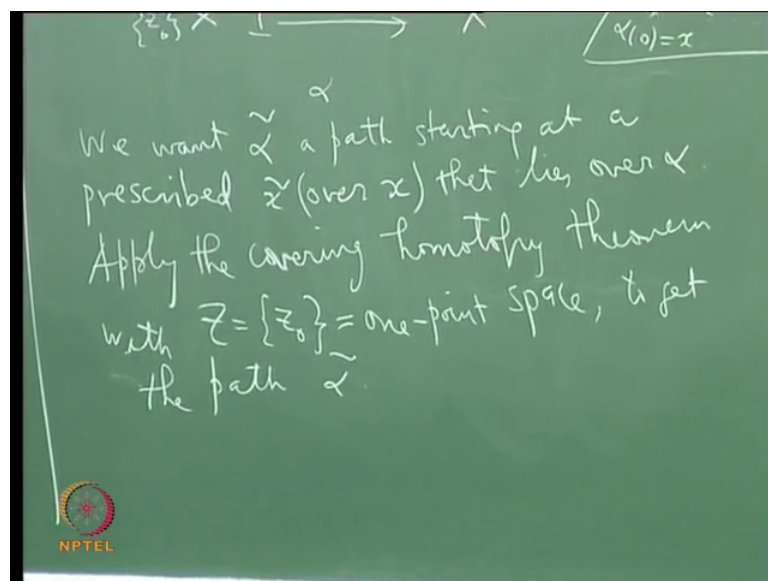 {z₀} × I ⟶ X
α(0)=x
α
We want α̃ a path starting at a
prescribed x̃ (over x) that lies over α.
Apply the covering homotopy theorem
with Z = {z₀} = one-point space, to get
the path α̃.
NPTEL